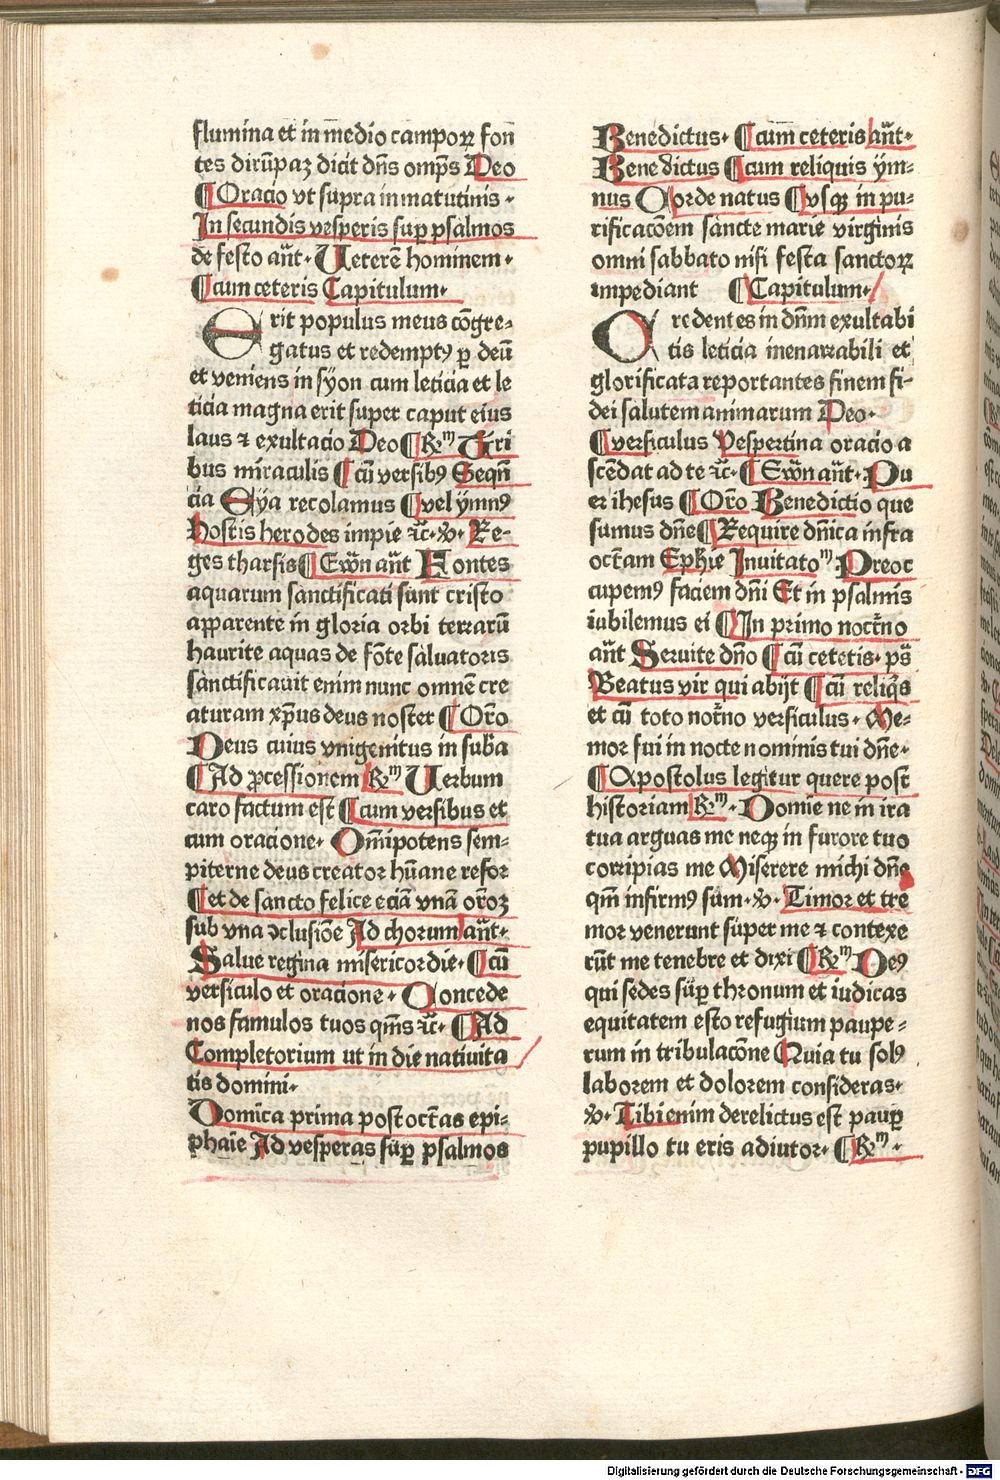 flumina et in medio campoꝝ fon
tes dirūpaʒ dicit dn̄s omp̄s Deo
¶ Oracio vt supra in matutinis ·
In secundis vesperis suꝑ psalmos
de festo an̄t · Veterē hominem ·
¶ cum ceteris Capitulum ·
Erit populus meus cōgre-
gatus et redemptꝰ ꝑ deū
et veniens in syon cum leticia et le
ticia magna erit super caput eius
laus ⁊ exultacio Deo ¶ R̄ᵐ Tri
bus miraculis ¶ cū versibꝰ Seqn̄
cia Sya recolamus ¶ vel ymnꝰ
Hostis herodes impie ⁊c̄ · v̄ · Re-
ges tharsis ¶ Ewn̄ an̄t Fontes
aquarum sanctificati sunt cristo
apparente in gloria orbi terrarū
haurite aquas de fōte saluatoris
sanctificauit enim nunc omnē cre
aturam xp̄us deus noster ¶ Orō
Deus cuius vnigenitus in suba
¶ Ad ꝓcessionem R̄ᵐ Verbum
caro factum est ¶ cum versibus et
cum oracione · Om̄ipotens sem-
piterne deus creator hūane refor
¶ et de sancto felice eciā vnā orōʒ
sub vna ↄclusiōe Ad chorum an̄t ·
Salue regina misericordie · ¶ cū
versiculo et oracione · Concede
nos famulos tuos qm̄s ⁊c̄ · ¶ Ad
Completorium ut in die natiuita
tis domini ·
Domīca prima post octas epi-
phaīe Ad vesperas suꝑ psalmos
Benedictus · ¶ cum ceteris an̄t ·
Benedictus ¶ cum reliquis ym-
nus Corde natus ¶ vsqꝫ in pu-
rificacōem sancte marie virginis
omni sabbato nisi festa sanctoꝝ
impediant ¶ Capitulum ·
Credentes in dn̄m exultabi
tis leticia inenarrabili et
glorificata reportantes finem fi-
dei salutem animarum Deo ·
¶ versiculus Vespertina oracio a
scēdat ad te ⁊c̄ · ¶ Ewn̄ an̄t · Pu
er ihesus ¶ Orō Benedictio que
sumus dn̄e ¶ Require dn̄ica infra
octam Ephīe Inuitatoᵐ Preoc
cupemꝰ faciem dn̄i Et in psalmis
iubilemus ei ¶ In primo noctno
an̄t Seruite dn̄o ¶ cū cetetis · ps̄
Beatus vir qui abijt ¶ cū reliqis
et cū toto notno versiculus · Me-
mor fui in nocte nominis tui dn̄e ·
¶ Apostolus legitur quere post
historiam R̄ᵐ · Domīe ne in ira
tua arguas me neqꝫ in furore tuo
corripias me Miserere michi dn̄e
qm̄ infirmꝰ sum · v̄ · Timor et tre
mor venerunt super me ⁊ contexe
rūt me tenebre et dixi ¶ R̄ᵐ Deꝰ
qui sedes suꝑ thronum et iudicas
equitatem esto refugium paupe-
rum in tribulacōne Quia tu solꝰ
laborem et dolorem consideras ·
v̄ · Tibi enim derelictus est pauꝑ
pupillo tu eris adiutor · ¶ R̄ᵐ ·
Digitalisierung gefördert durch die Deutsche Forschungsgemeinschaft - DFG